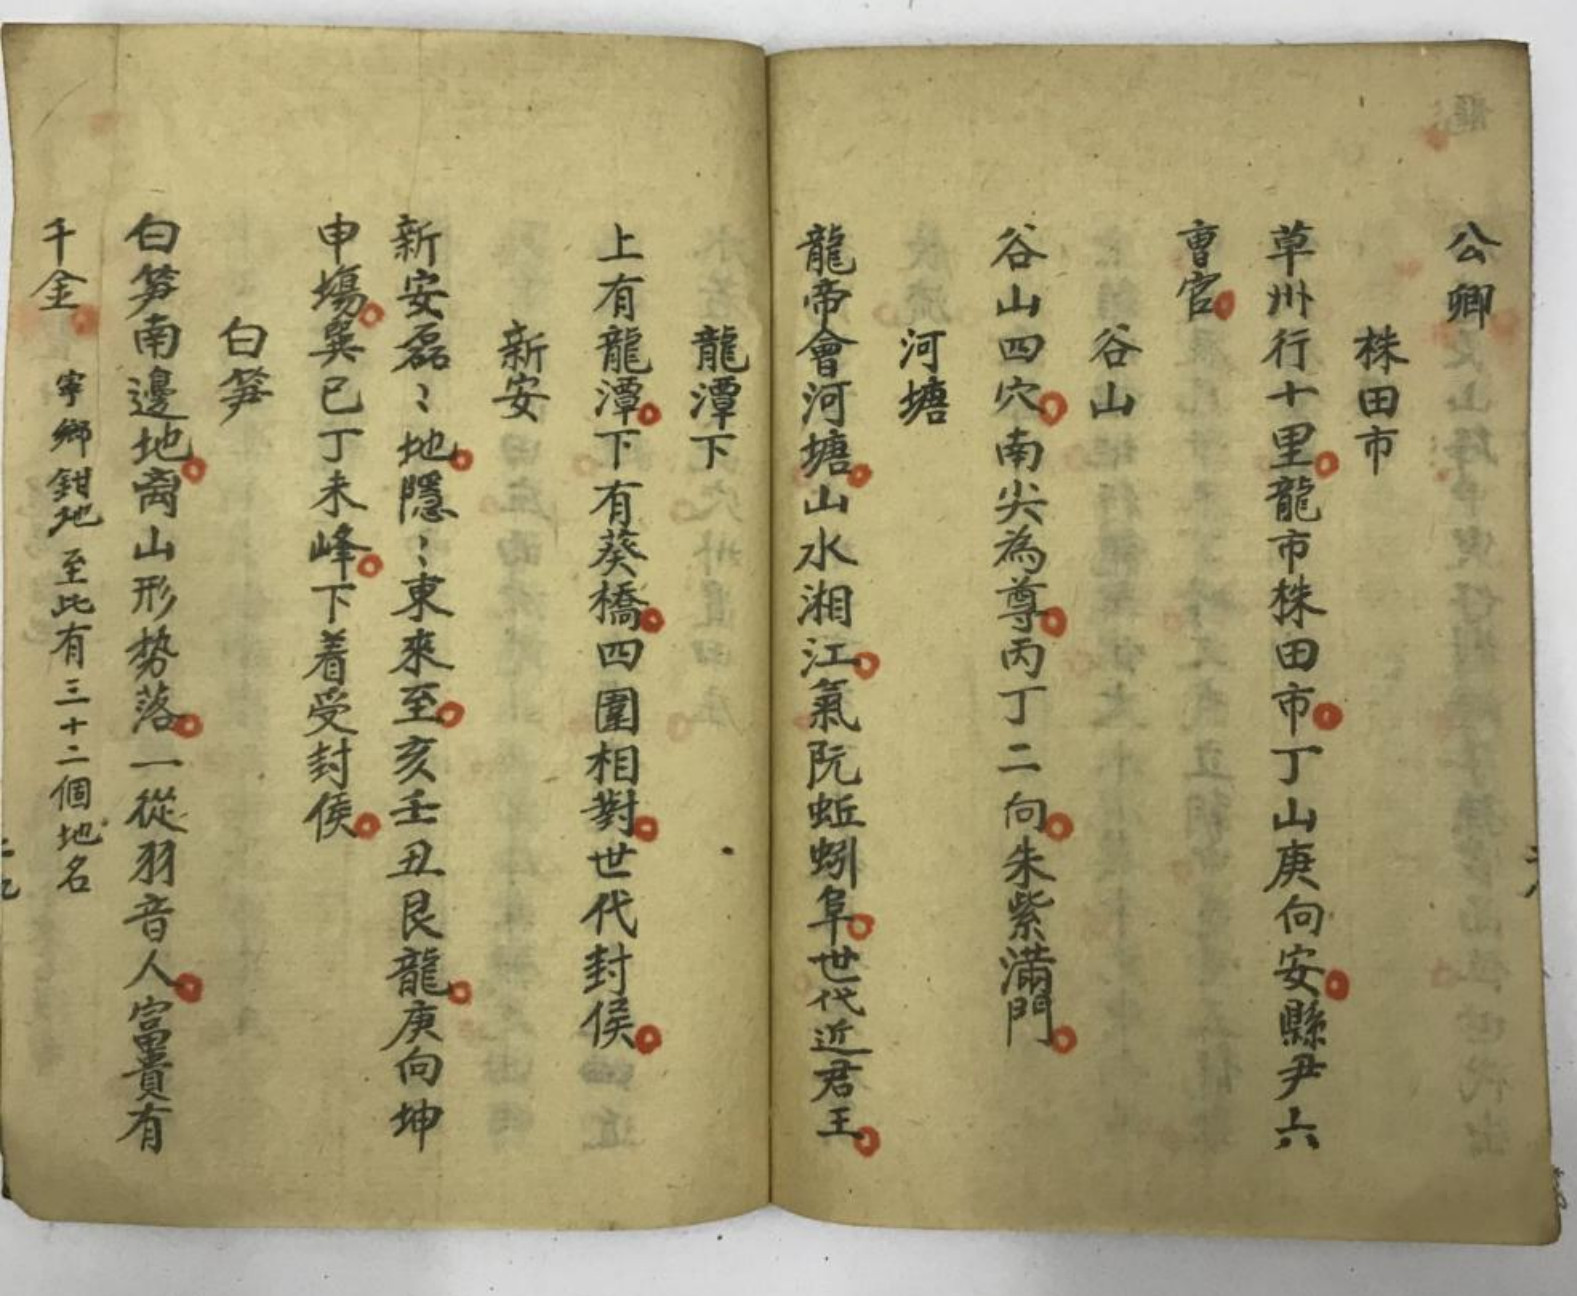 公卿
株田市
草卅行十里龍市株田市丁山庚向安縣尹六
曹官
谷山
谷山四穴南尖為尊丙丁二向朱紫滿門
河塘
龍帝會河塘山水湘江氣阮蚯蚓阜世代近君王
龍潭下
上有龍潭下有葵橋四圍相對世代封侯
新安
新安磊〻地隱〻東來至亥壬丑艮龍庚向坤
申塲巽巳丁未峰下着受封侯
白笋
白笋南邊地离山形势落一從羽音人富貴有
千金 寜鄉鉗地至此有三十二個地名